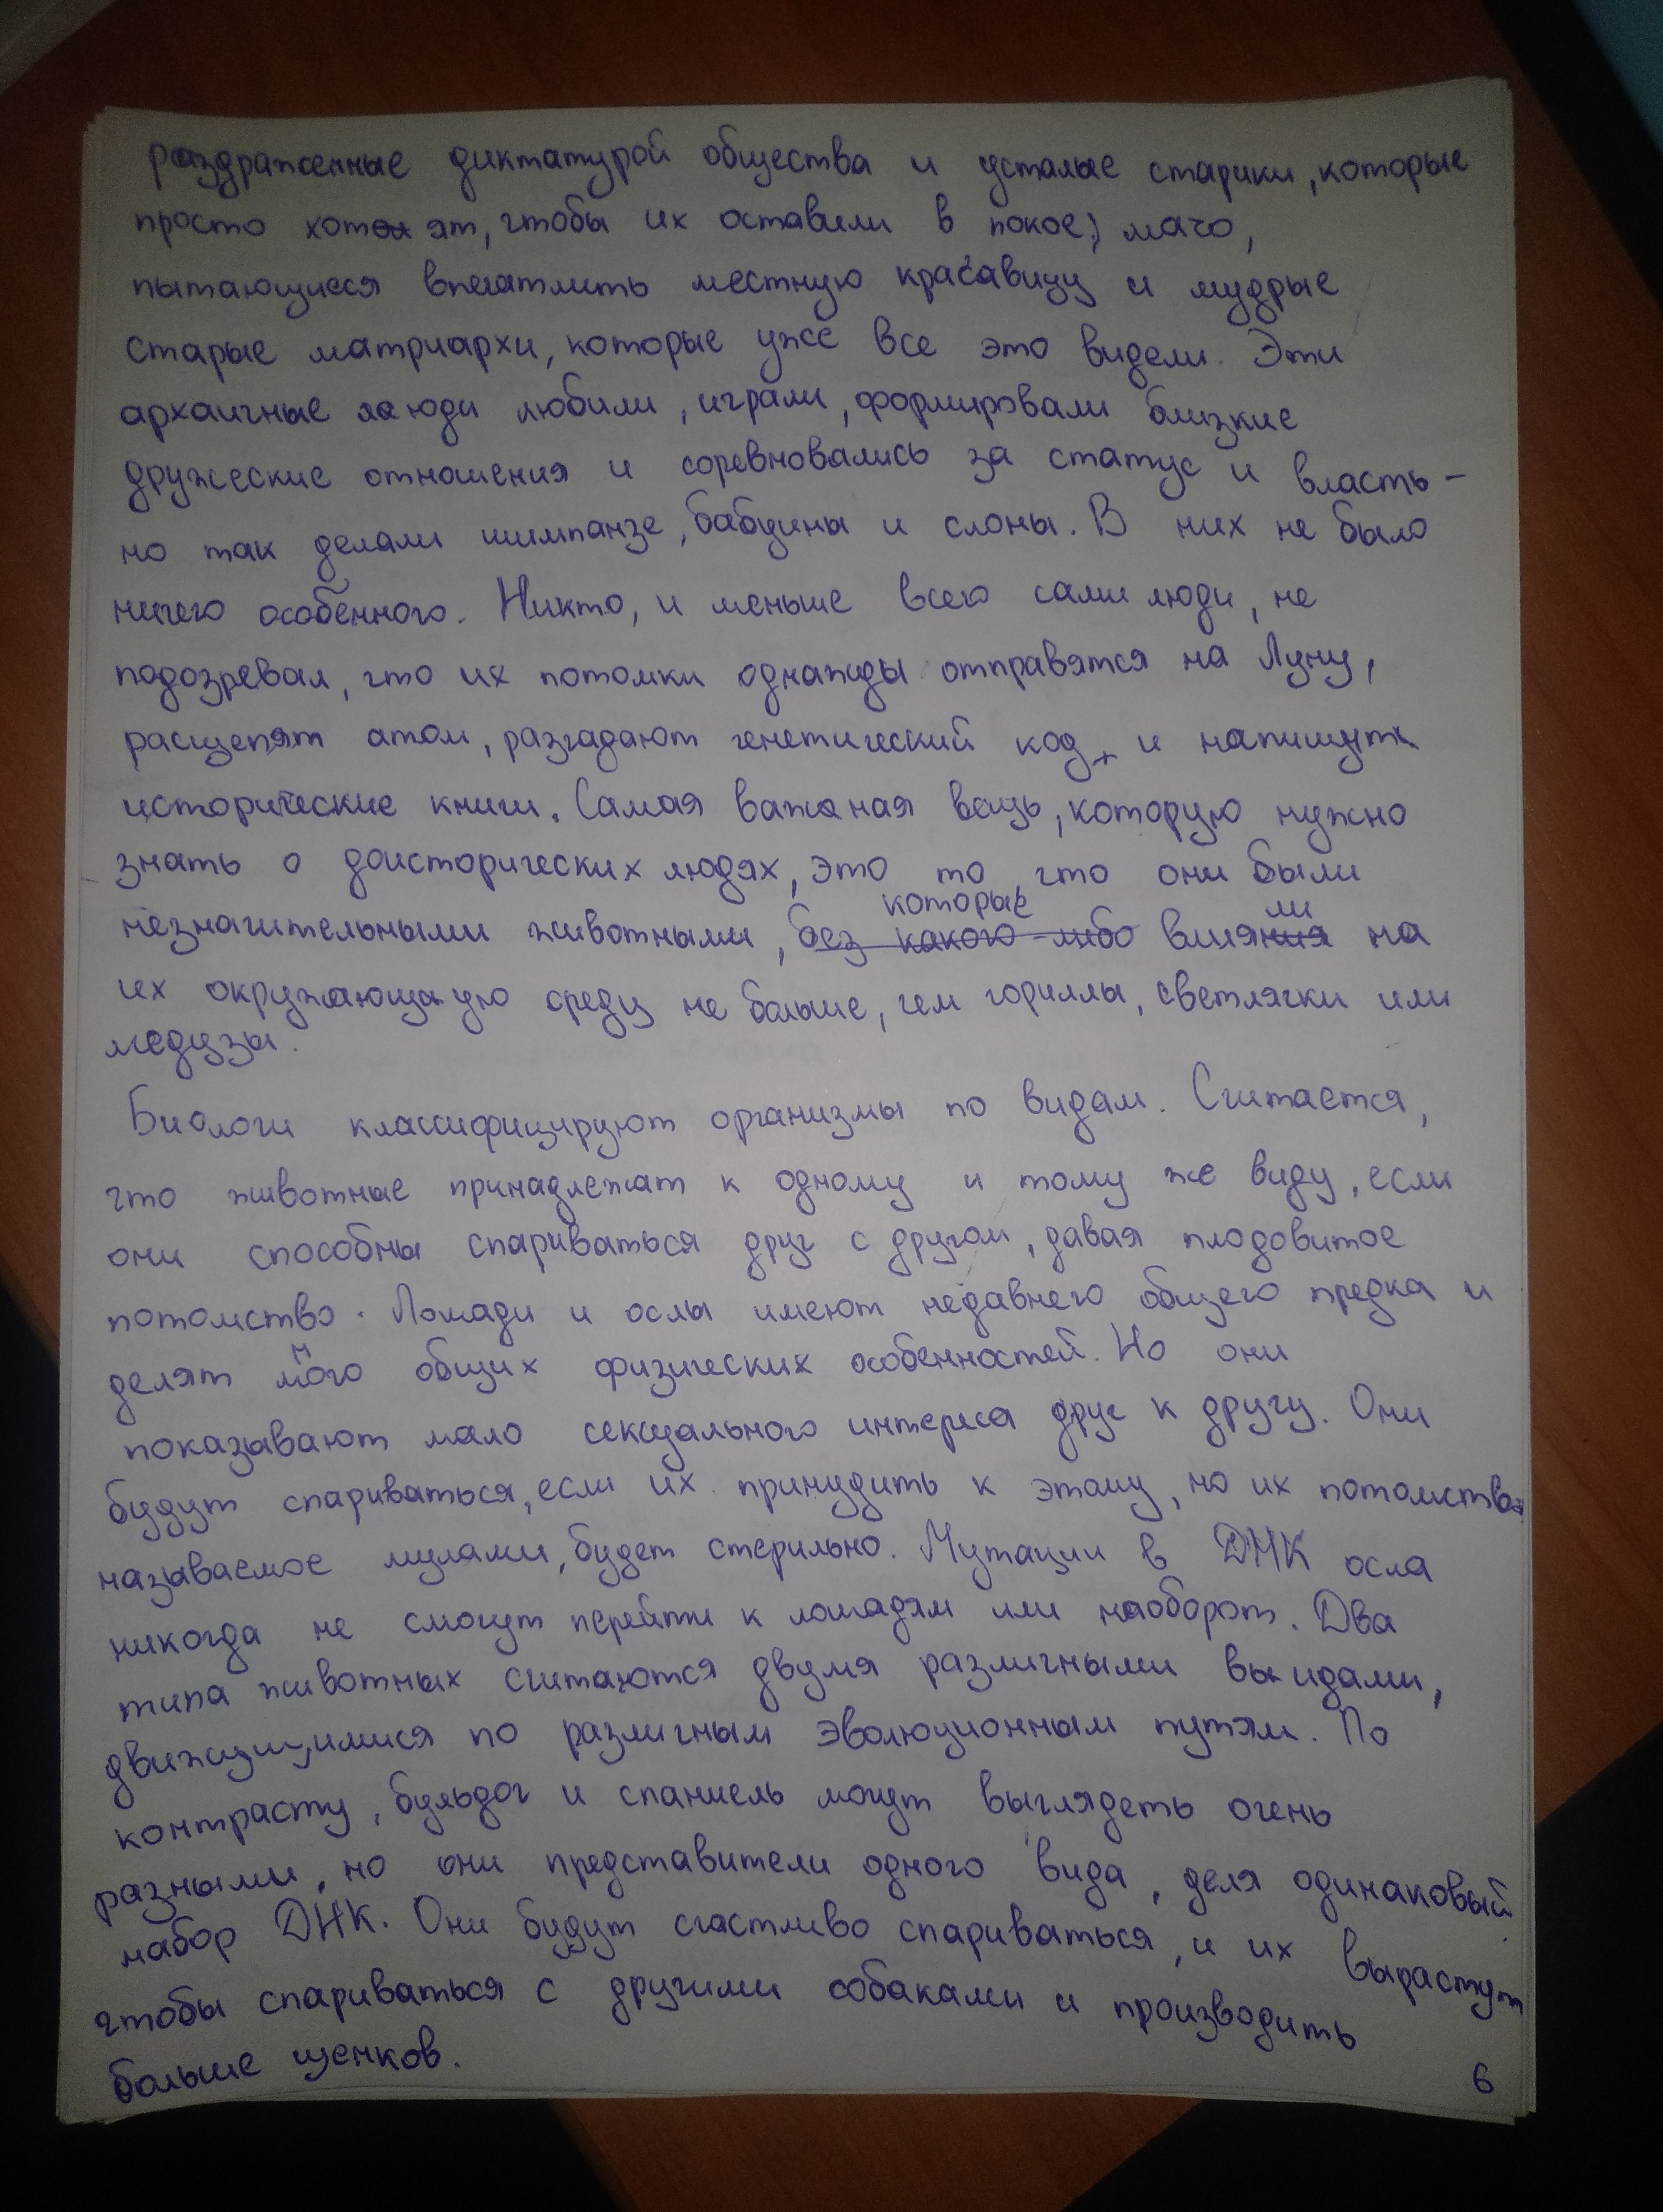 раздраженные диктатурой общества и усталые старики, которые
просто хотят, чтобы их оставили в покое; мачо,
пытающиеся впечатлить местную красавицу и мудрые
старые матриархи, которые уже все это видели. Эти
архаичные люди любили, играли, формировали близкие
дружеские отношения и соревновались за статус и власть -
но так делали шимпанзе, бабуины и слоны. В них не было
ничего особенного. Никто, и меньше всего сами люди, не
подозревал, что их потомки однажды отправятся на Луну,
расщепят атом, разгадают генетический код и напишут
исторические книги. Самая важная вещь, которую нужно
знать о доисторических людях, это то что они были
незначительными животными, которые влияли на
их окружающую среду не больше, чем гориллы, светлячки или
медузы.
Биологи классифицируют организмы по видам. Считается,
что животные принадлежат к одному и тому же виду, если
они способны спариваться друг с другом, давая плодовитое
потомство. Лошади и ослы имеют недавнего общего предка и
делят много общих физических особенностей. Но они
показывают мало сексуального интереса друг к другу. Они
будут спариваться, если их принудить к этому, но их потомство,
называемое мулами, будет стерильно. Мутации в ДНК осла
никогда не смогут перейти к лошадям или наоборот. Два
типа животных считаются двумя различными видами,
движущимися по различным эволюционным путям. По
контрасту, бульдог и спаниель могут выглядеть очень
разными, но они представители одного вида, деля одинаковый
набор ДНК. Они будут счастливо спариваться, и их вырастут
чтобы спариваться с другими собаками и производить
больше щенков.
6